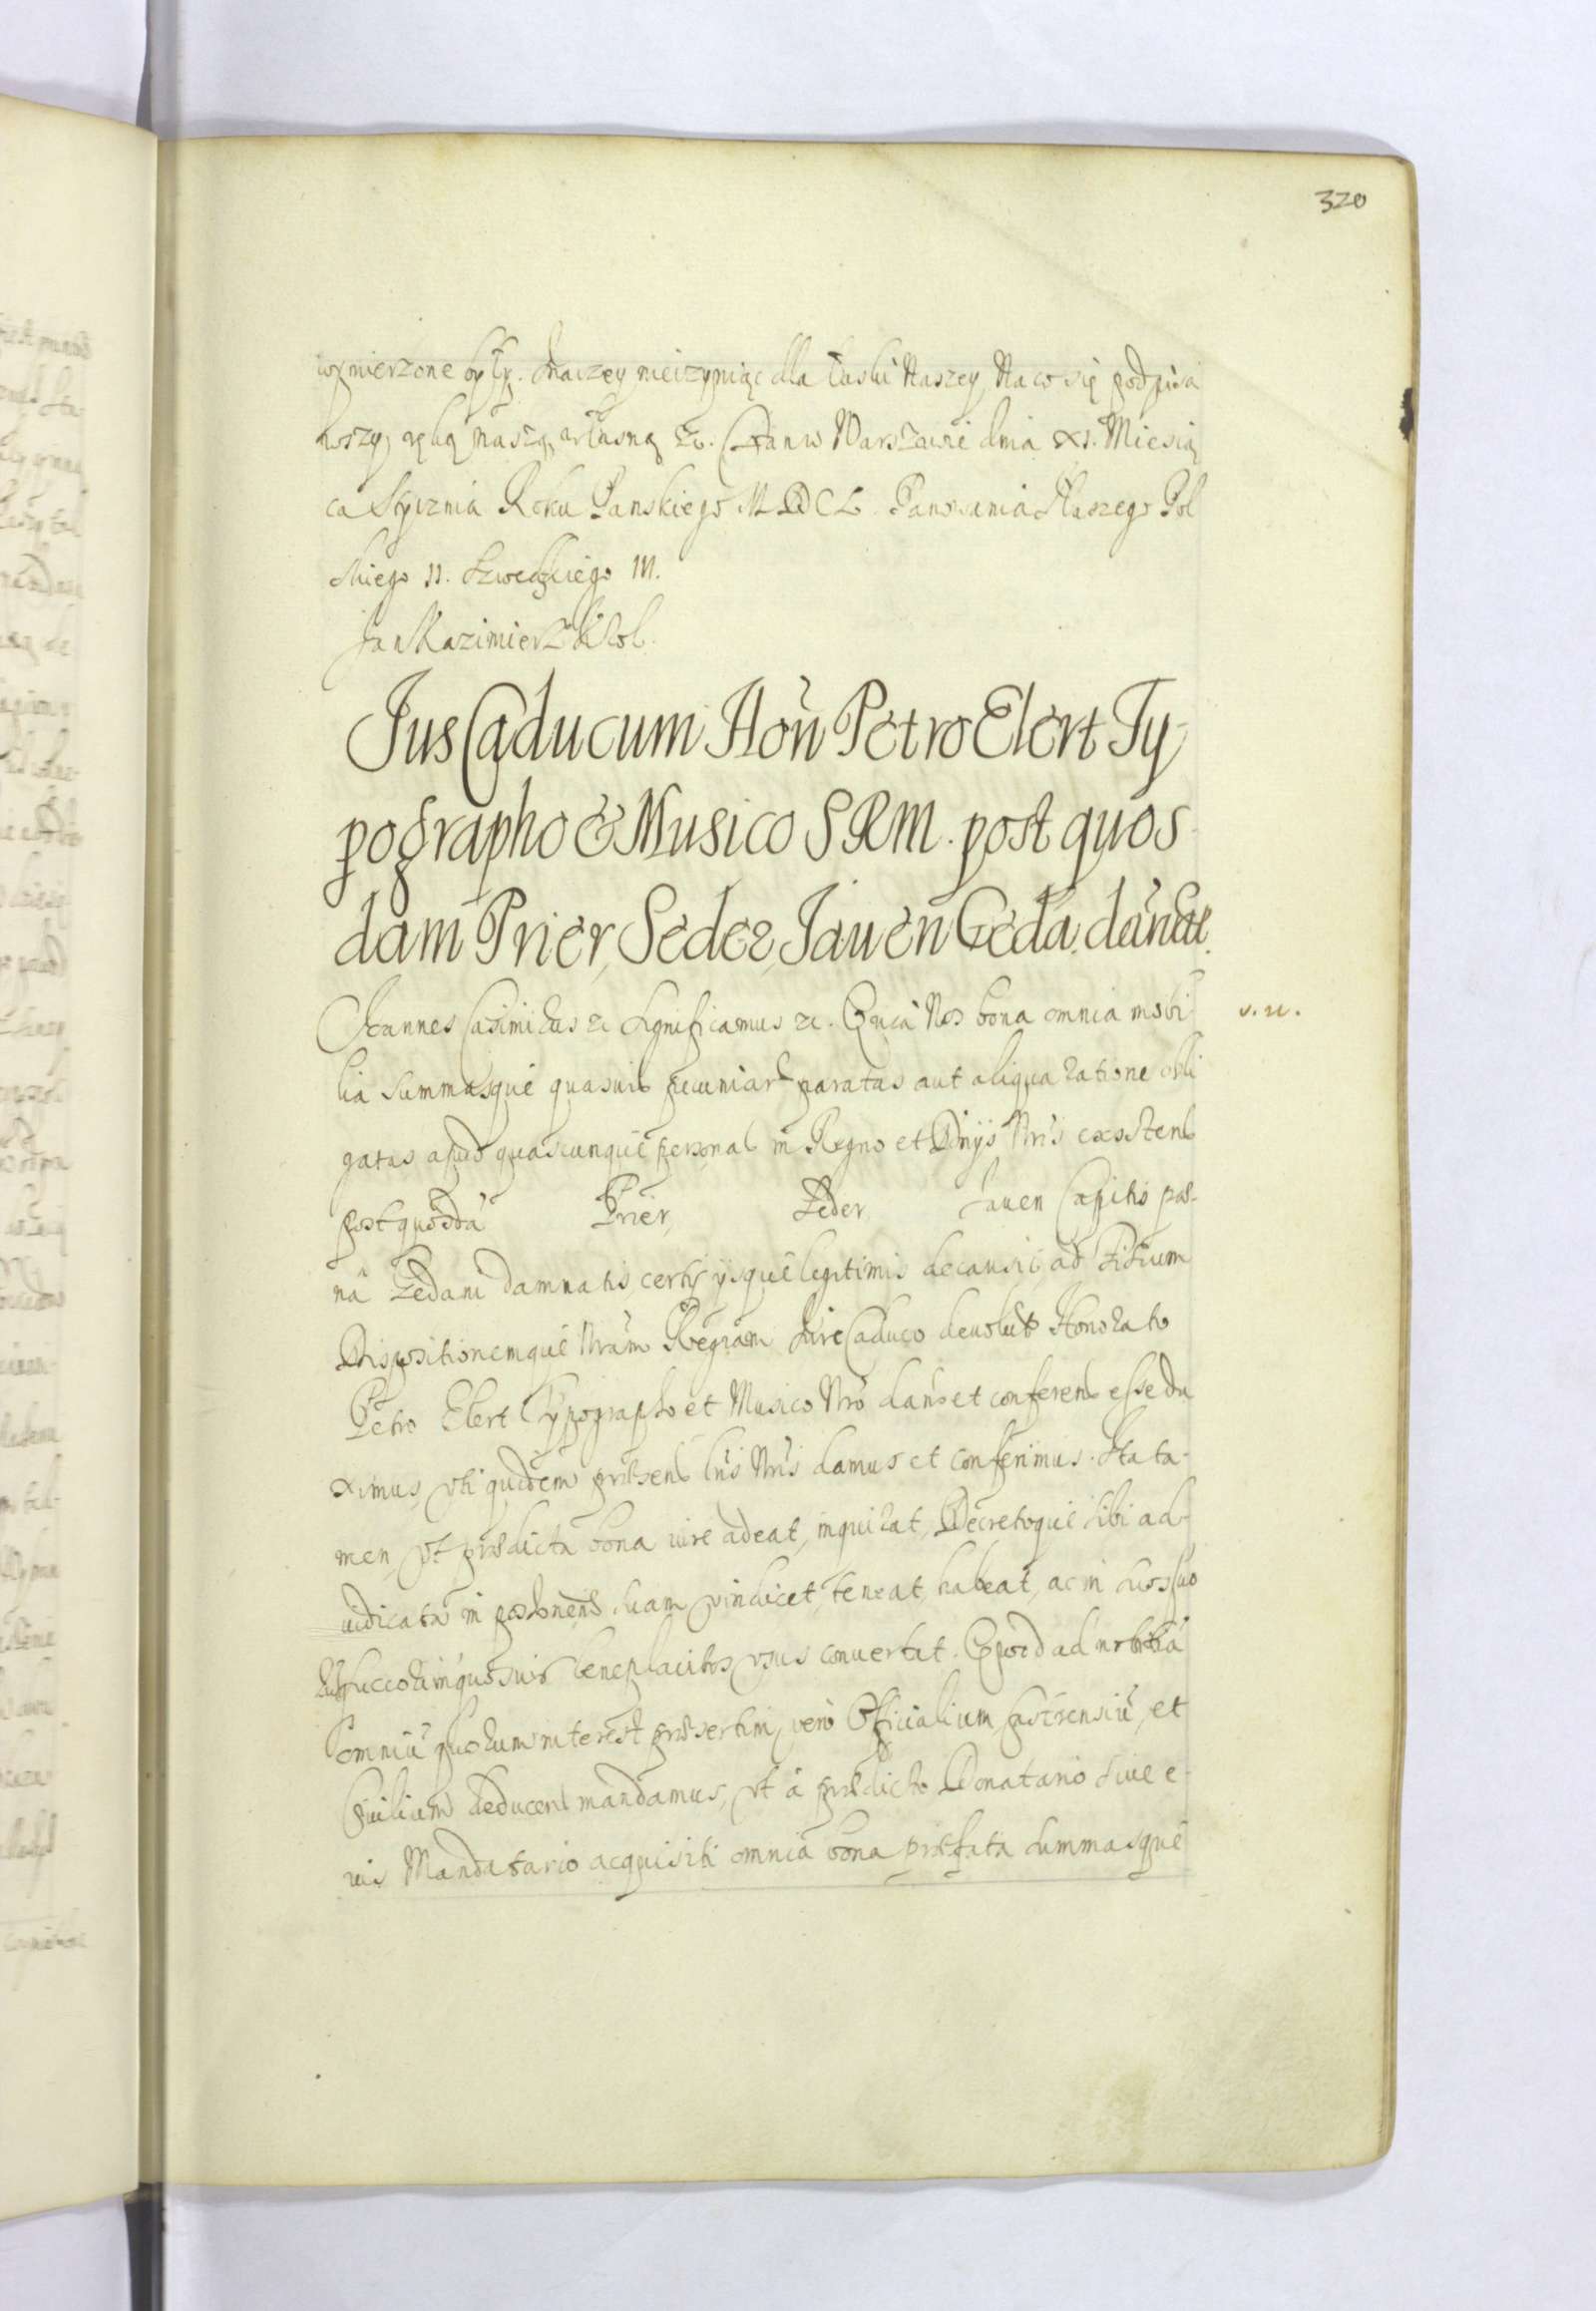 320
wymierzone były. Jnaczey nieczyniąc dla łaski Naszey, Na co się podpisa
wszy ręką naszą własną &c. Dan w Warszawie dnia XI. Miesią
ca Stycznia Roku Panskiego MDCL. Panowania Naszego Pol
skiego II. Szwedzkiego III.
Jan Kazimierz Krol.
Jus Caducum Hon Petro Elert Ty
pographo & Musico SRM. post quos
dam Prier, Seder, Jauen Geda. danat.
Joannes Casimirus &c Significamus &c. Quia Nos bona omnia mobi
lia summasque quasuis pecuniar paratas aut aliqua ratione obli
gatas apud quascunque personas in Regno et Dnijs Nris existens
post quosda Prier, Zeder, Jauen Capitis pae-
na Gedani damnatis, certis ijsque legitimis de causis ad Fiscum
Dispositionemque Nram Regiam Jure Caduco deuolut Honorato
Petro Elert Typographo et Musico Nro dand et conferend esse du
ximus, vti quidem prsens lris Nris damus et conferimus. Ita ta-
men, vt prdicta bona iure adeat, inquirat, Decretoque sibi ad-
iudicata in possnem suam vindicet, teneat, habeat, ac in suos suo
rumq succorum quosuis beneplacitos vsus conuertat. Quod ad notitia
omniu quorum interest prsertim vero Officialium, castrensiu, et
Ciuilium deducend mandamus, vt a prdicto Donatario siue e-
ius Mandatario acquisiti omnia bona prfata summasque
v. u.